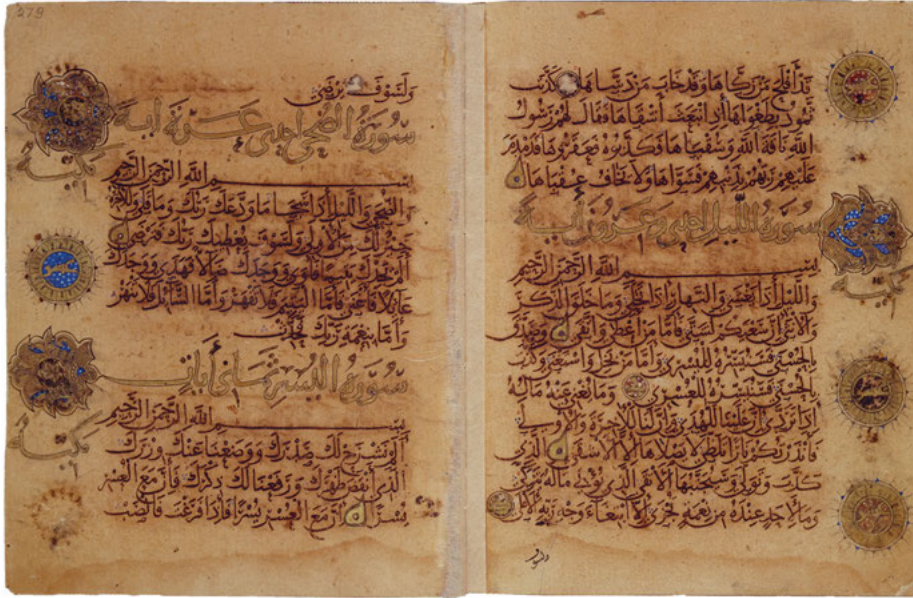 قد أفلح من زكاها وقد خاب من دساها كذبت
ثمود بطغواها إذ انبعث أشقاها فقال لهم رسول
الله ناقة الله وسقياها فكذبوه فعقروها فدمدم
عليهم ربهم بذنبهم فسواها ولا يخاف عقباها
سورة الليل احدى وعشرون آية
مكية
بسم الله الرحمن الرحيم
والليل إذا يغشى والنهار إذا تجلى وما خلق الذكر
والأنثى إن سعيكم لشتى فأما من أعطى واتقى وصدق
بالحسنى فسنيسره لليسرى وأما من بخل واستغنى وكذب
بالحسنى فسنيسره للعسرى وما يغني عنه ماله
إذا تردى إن علينا للهدى وإن لنا للآخرة والأولى
فأنذرتكم نارا تلظى لا يصلاها إلا الأشقى الذي
كذب وتولى وسيجنبها الأتقى الذي يؤتي ماله يتزكى
وما لأحد عنده من نعمة تجزى إلا ابتغاء وجه ربه الأعلى
ولسوف يرضى
سورة الضحى احدى عشرة آية
مكية
بسم الله الرحمن الرحيم
والضحى والليل إذا سجا ما ودعك ربك وما قلى وللآخرة
خير لك من الأولى ولسوف يعطيك ربك فترضى
ألم يجدك يتيما فآوى ووجدك ضالا فهدى ووجدك
عائلا فأغنى فأما اليتيم فلا تقهر وأما السائل فلا تنهر
وأما بنعمة ربك فحدث
سورة اليسر ثماني آيات
مكية
بسم الله الرحمن الرحيم
ألم نشرح لك صدرك ووضعنا عنك وزرك
الذي أنقض ظهرك ورفعنا لك ذكرك فإن مع العسر
يسرا إن مع العسر يسرا فإذا فرغت فانصب